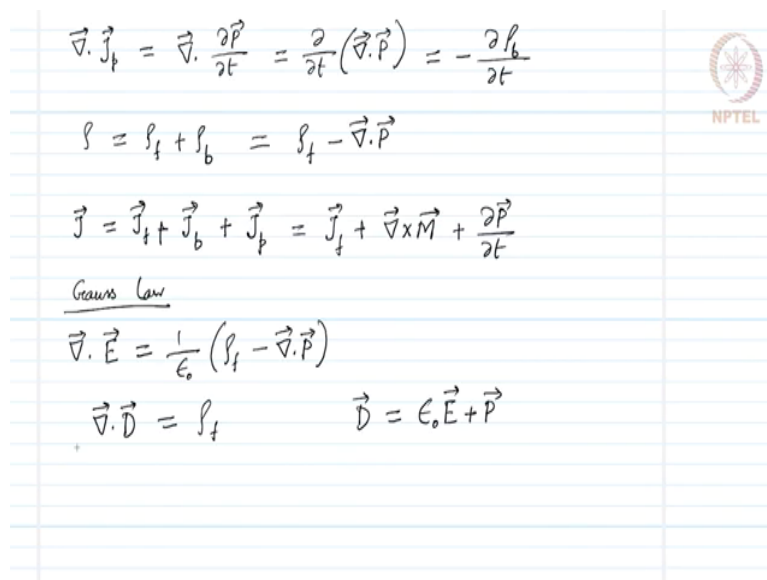 ∇⃗.J⃗ₚ = ∇⃗.∂P⃗/∂t = ∂/∂t(∇⃗.P⃗) = -∂ρ_b/∂t
NPTEL
ρ = ρ_f + ρ_b = ρ_f - ∇⃗.P⃗
J⃗ = J⃗_f + J⃗_b + J⃗_p = J⃗_f + ∇⃗×M⃗ + ∂P⃗/∂t
Gauss Law
∇⃗.E⃗ = 1/ϵ₀(ρ_f - ∇⃗.P⃗)
∇⃗.D⃗ = ρ_f D⃗ = ϵ₀E⃗+P⃗